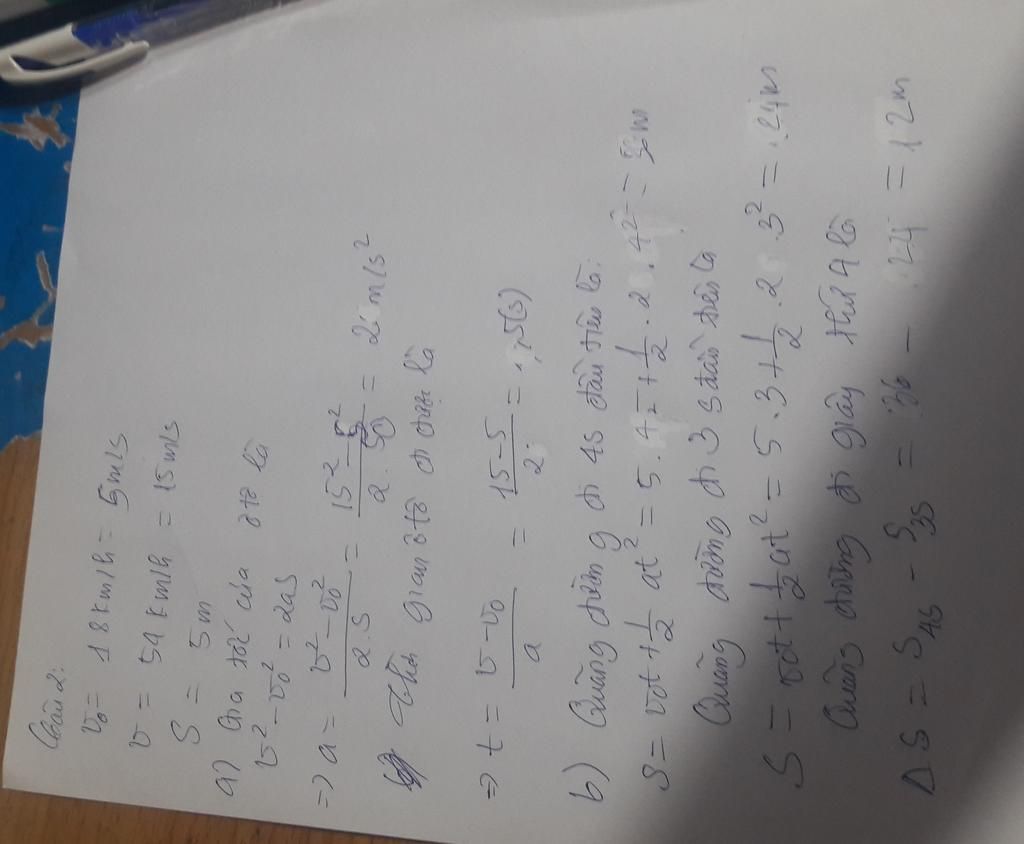 Câu 2:
v₀ = 18 km/h = 5 m/s
v = 54 km/h = 15 m/s
S = 5 m
a) Gia tốc của ôtô là
v² - v₀² = 2as
=> a = \frac{v² - v₀²}{2.S} = \frac{15² - 5²}{2.50} = 2 m/s²
Thời gian ôtô đi được là
=> t = \frac{v - v₀}{a} = \frac{15 - 5}{2} = 5(s)
b) Quãng đường đi 4s đầu tiên là:
S = v₀t + \frac{1}{2} at² = 5 . 4 + \frac{1}{2} . 2 . 4² = 36m
Quãng đường đi 3 s đầu tiên là
S = v₀t + \frac{1}{2} at² = 5 . 3 + \frac{1}{2} . 2 . 3² = 24m
Quãng đường đi giây thứ 4 là
Δ S = S₄ₛ - S₃ₛ = 36 - 24 = 12m